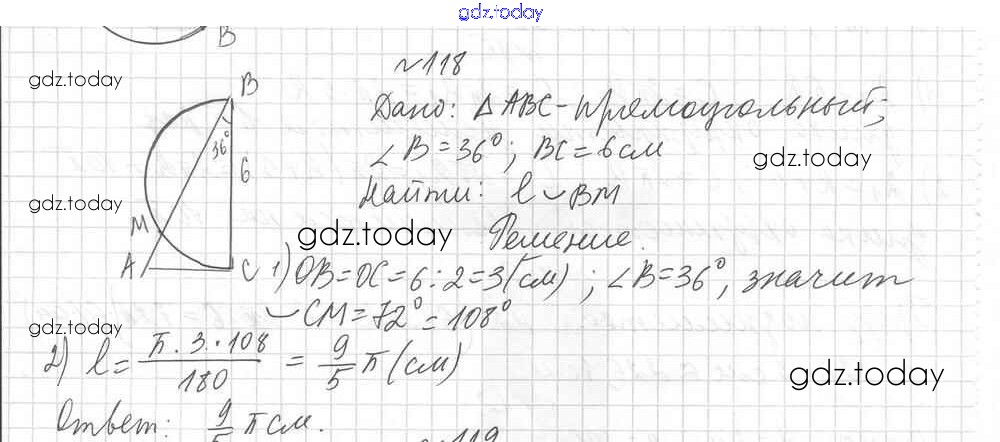 gdz.today
B
№118
gdz.today
B
Дано: △ ABC - прямоугольный;
36°
∠B = 36°; BC = 6 см
gdz.today
6
Найти: l ⌣ BM
gdz.today
M
gdz.today
Решение.
A
C
1) OB = OC = 6 : 2 = 3 (см) ; ∠B = 36°, значит
⌣ CM = 72° = 108°
gdz.today
2) l = π · 3 · 108 / 180 = 9/5 π (см)
gdz.today
Ответ: 9/5 π см.
№119